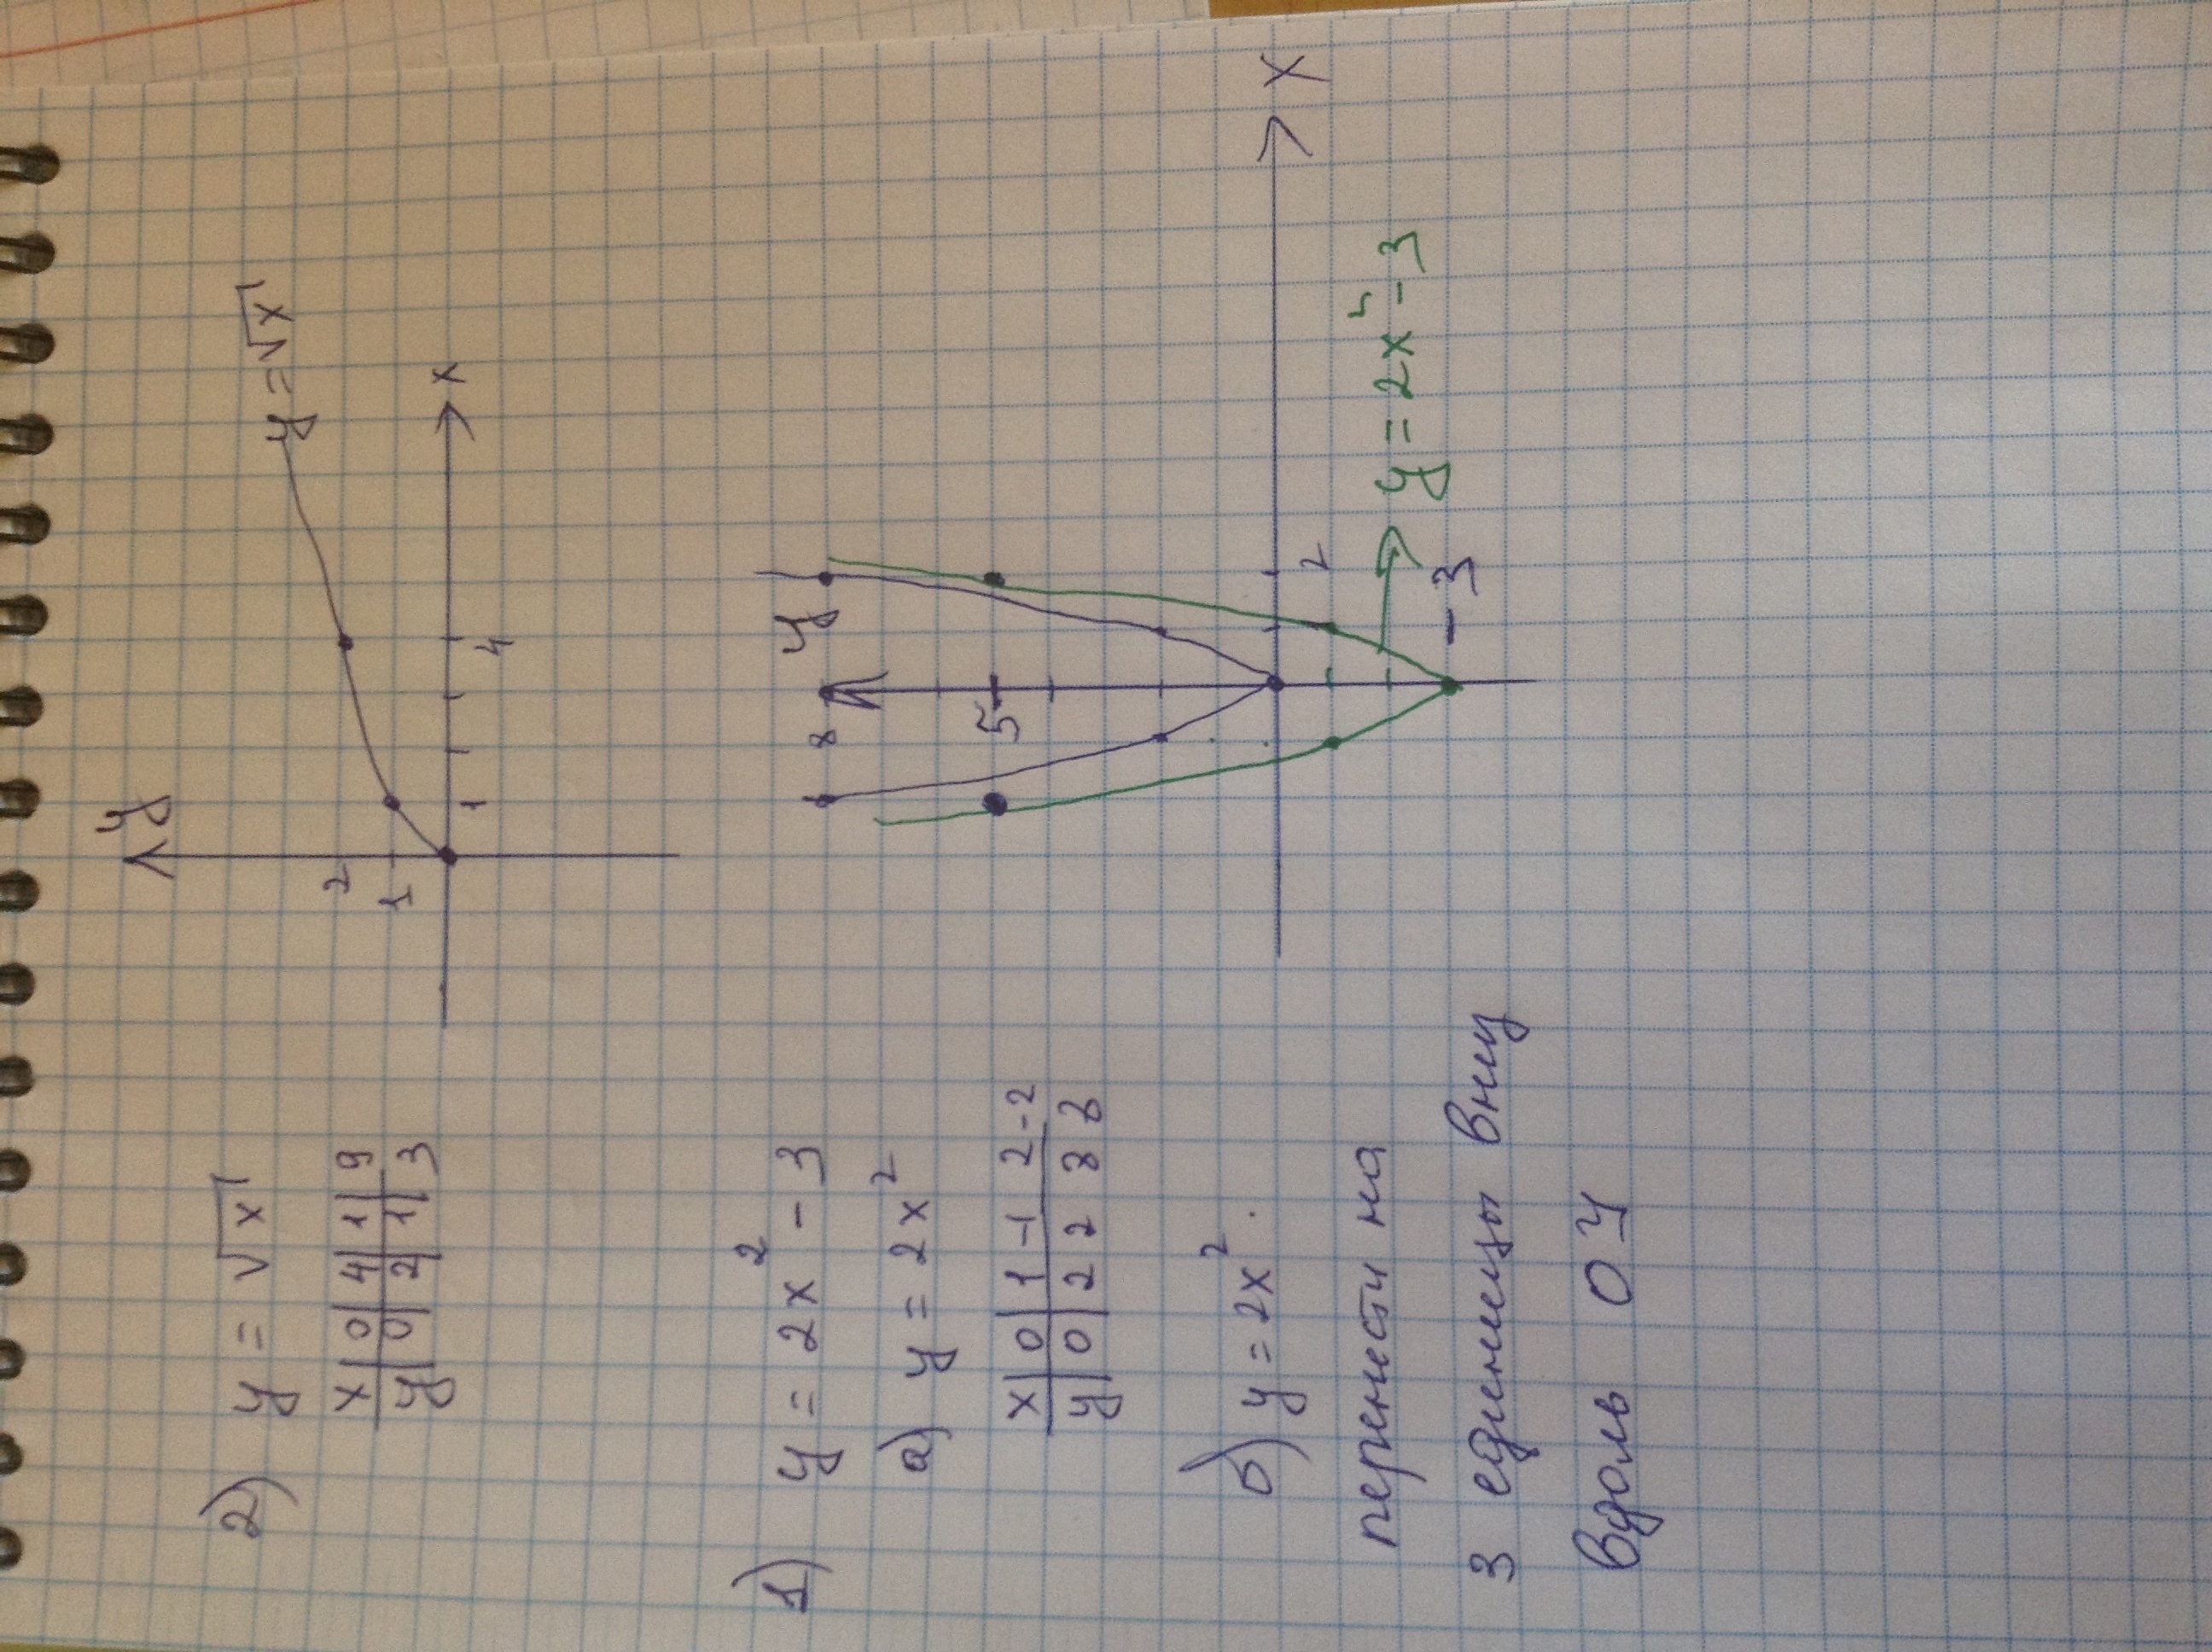 2) y = √x
x | 0 | 4 | 1 | 9
y | 0 | 2 | 1 | 3
y
2
1
1
4
x
y = √x
1) y = 2x² - 3
а) y = 2x²
x | 0 | 1 -1 2 -2
y | 0 | 2 2 8 8
б) y = 2x².
перенести на
3 единицы вниз
вдоль OY
y
8
5
2
X
-3
y = 2x² - 3